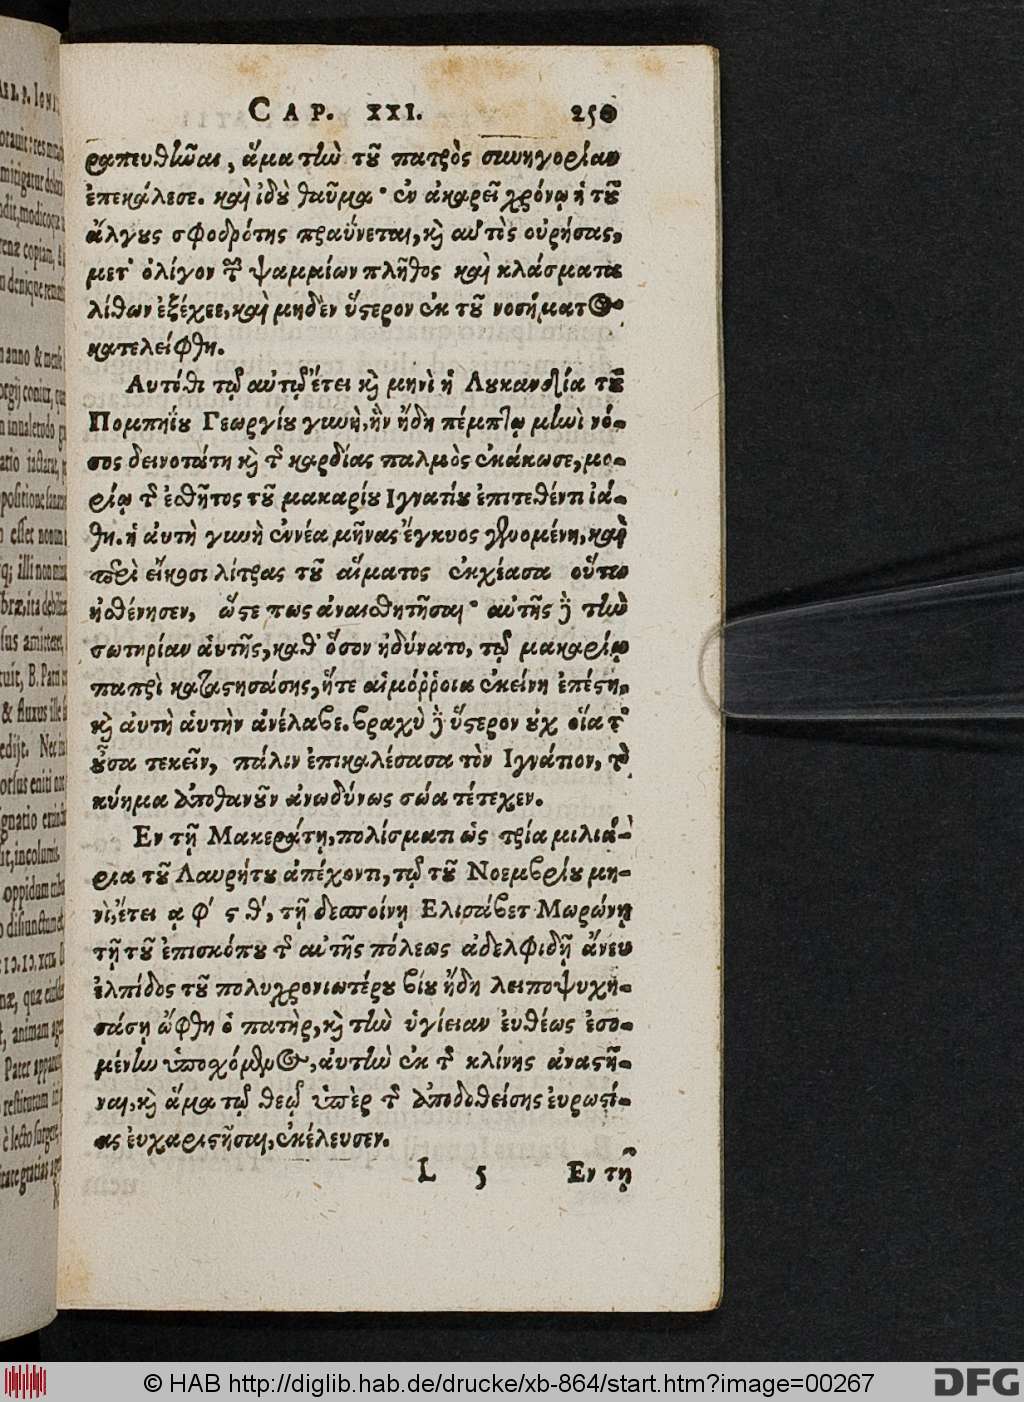 CAP. XXI. 250
ραπευθῶσαι, ἅμα τὴν τοῦ πατρὸς συνηγορίαν
ἐπεκάλεσε. καὶ ἰδοὺ θαῦμα· ἐν ἀκαρεῖ χρόνῳ ἡ τοῦ
ἄλγους σφοδρότης πραΰνεται, καὶ αὐτὸς οὐρήσας,
μετ' ὀλίγον τῶν ψαμμίων πλῆθος καὶ κλάσματα
λίθων ἐξέχεε, καὶ μηδὲν ὕστερον ἐκ τοῦ νοσήματος
κατελείφθη.
Αυτόθι τῷ αὐτῷ ἔτει καὶ μηνὶ ἡ Λουκανδζία τοῦ
Πομπηΐου Γεωργίου γυνὴ, ἣν ἤδη πέμπτῳ μηνὶ νό-
σος δεινοτάτη καὶ τῆς καρδίας παλμὸς ἐκάκωσε, μο-
ρίῳ τῆς ἐσθῆτος τοῦ μακαρίου Ιγνατίου ἐπιτεθέντι ἰά-
θη. ἡ ἀυτὴ γυνὴ ἐννέα μῆνας ἔγκυος γενομένη, καὶ
περὶ εἴκοσι λίτρας τοῦ αἵματος ἐκχέασα οὕτω
ἠσθένησεν, ὥστε πως ἀναισθητῆσαι· αὐτῆς δὲ τὴν
σωτηρίαν ἁυτῆς, καθ' ὅσον ἠδύνατο, τῷ μακαρίῳ
πατρὶ καταστησάσης, ἥτε αἱμόῤῥοια ἐκείνη ἐπέστη,
καὶ ἀυτὴ ἁυτὴν ἀνέλαβε. βραχὺ δὲ ὕστερον οὐχ οἵα τ'
οὖσα τεκεῖν, πάλιν ἐπικαλέσασα τὸν Ιγνάτιον, τὸ
κύημα ἀποθανοῦν ἀνωδύνως σώα τέτοχεν.
Εν τῇ Μακεράτῃ, πολίσματι ὡς τρία μιλιά-
ρια τοῦ Λαυρήτου ἀπέχοντι, τῷ τοῦ Νοεμβρίου μη-
νὶ, ἔτει α φ' ϛ θ', τῇ δεσποίνῃ Ελισάβετ Μωρώνῃ
τῇ τοῦ ἐπισκόπου τῆς αὐτῆς πόλεως ἀδελφιδῇ ἄνευ
ἐλπίδος τοῦ πολυχρονιωτέρου βίου ἤδη λειποψυχη-
σάσῃ ὤφθη ὁ πατὴρ, καὶ τὴν ὑγίειαν ἐυθέως ἐσο-
μένην ὑποσχόμενος, ἀυτὴν ἐκ τῆς κλίνης ἀναστῆ-
ναι, καὶ ἅμα τῷ θεῷ ὑπὲρ τῆς ἀποδοθείσης ἐυρωστί-
ας ἐυχαριστῆσαι, ἐκέλευσεν.
L 5 Εν τῇ
© HAB http://diglib.hab.de/drucke/xb-864/start.htm?image=00267
DFG